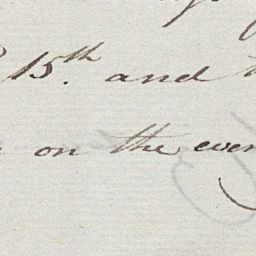 15th. and
on the even